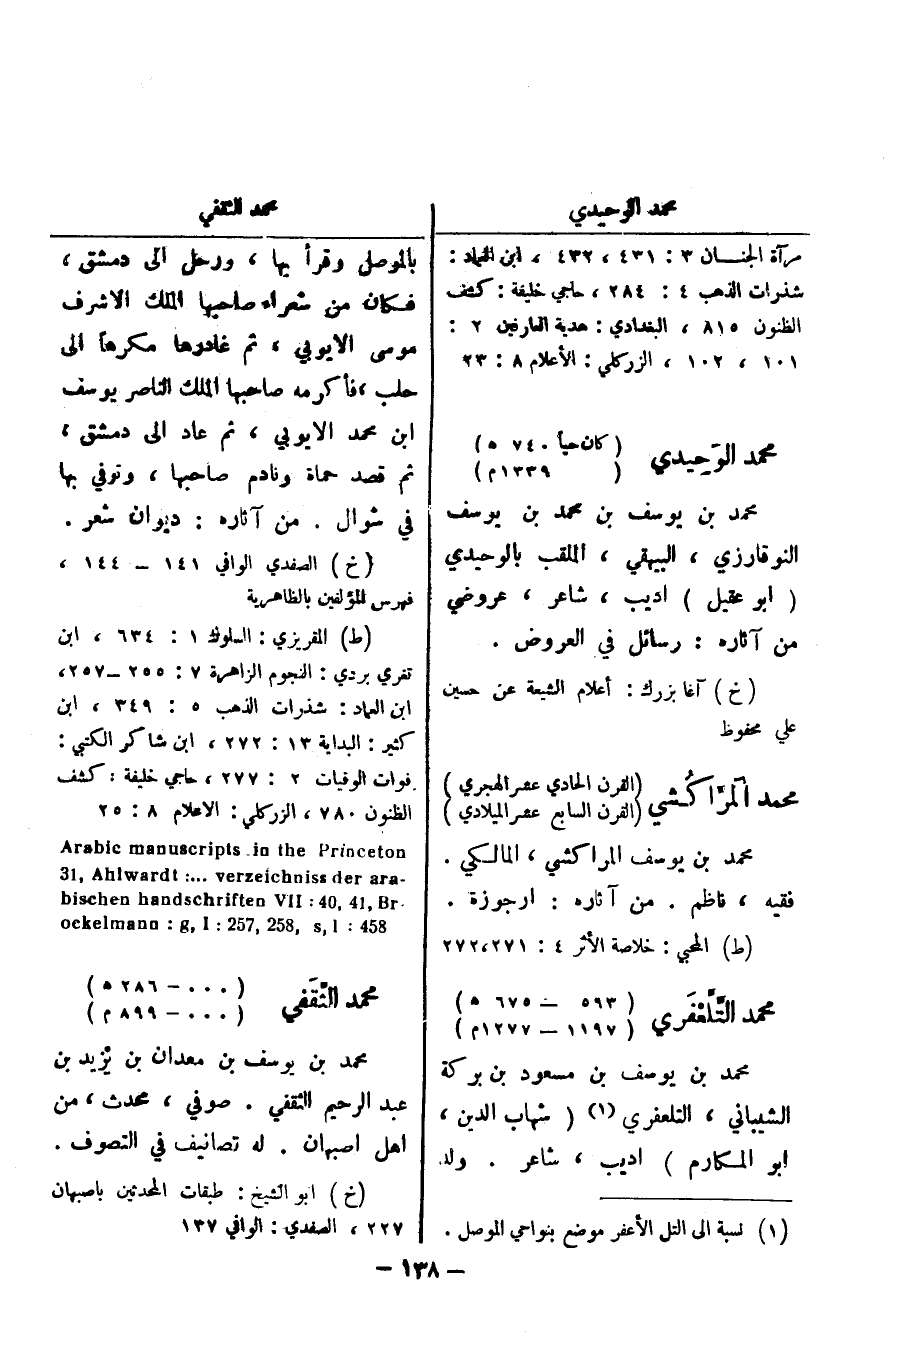 محمد الوحيدي
مرآة الجنان ٣ : ٤٣١ ، ٤٣٢ ، ابن العماد :
شذرات الذهب ٤ : ٢٨٤ ، حاجي خليفة : كشف
الظنون ٨١٥ ، البغدادي : هدية العارفين ٢ :
١٠١ ، ١٠٢ ، الزركلي : الأعلام ٨ : ٢٣
محمد الوَحِيدي
( كان حياً ٧٤٠ ه )
( ١٣٣٩ م )
محمد بن يوسف بن محمد بن يوسف
النوقارزي ، البيهقي ، الملقب بالوحيدي
( ابو عقيل ) اديب ، شاعر ، عروضي
من آثاره : رسائل في العروض .
( خ ) آغا بزرك : أعلام الشيعة عن حسين
علي محفوظ
محمد المَرّاكُشي
( القرن الحادي عشر الهجري )
( القرن السابع عشر الميلادي )
محمد بن يوسف المراكشي ، المالكي .
فقيه ، ناظم . من آثاره : ارجوزة .
( ط ) المحبي : خلاصة الأثر ٤ : ٢٧١ ، ٢٧٢
محمد التَّلَّعْفَري
( ٥٩٣ – ٦٧٥ ه )
( ١١٩٧ – ١٢٧٧ م )
محمد بن يوسف بن مسعود بن بركة
الشيباني ، التلعفري (١) ( شهاب الدين ،
ابو المكارم ) اديب ، شاعر . ولد
(١) نسبة الى التل الأعفر موضع بنواحي الموصل .
محمد الثقفي
بالموصل وقرأ بها ، ورحل الى دمشق ،
فكان من شعراء صاحبها الملك الاشرف
موسى الايوبي ، ثم غادرها مكرهاً الى
حلب ، فأكرمه صاحبها الملك الناصر يوسف
ابن محمد الايوبي ، ثم عاد الى دمشق ،
ثم قصد حماة ونادم صاحبها ، وتوفي بها
في شوال . من آثاره : ديوان شعر .
( خ ) الصفدي الوافي ١٤١ – ١٤٤ ،
فهرس المؤلفين بالظاهرية
( ط ) المقريزي : السلوك ١ : ٦٣٤ ، ابن
تغري بردي : النجوم الزاهرة ٧ : ٢٥٥ – ٢٥٧ ،
ابن العماد : شذرات الذهب ٥ : ٣٤٩ ، ابن
كثير : البداية ١٣ : ٢٧٢ ، ابن شاكر الكتبي :
فوات الوفيات ٢ : ٢٧٧ ، حاجي خليفة : كشف
الظنون ٧٨٠ ، الزركلي : الاعلام ٨ : ٢٥
Arabic manuscripts in the Princeton
31, Ahlwardt :... verzeichniss der ara-
bischen handschriften VII : 40, 41, Br-
ockelmann : g, I : 257, 258, s, I : 458
محمد الثَّقَفي
( ٠٠٠ – ٢٨٦ ه )
( ٠٠٠ – ٨٩٩ م )
محمد بن يوسف بن معدان بن يزيد بن
عبد الرحيم الثقفي . صوفي ، محدث ، من
اهل اصبهان . له تصانيف في التصوف .
( خ ) ابو الشيخ : طبقات المحدثين باصبهان
٢٢٧ ، الصفدي : الوافي ١٣٧
– ١٣٨ –